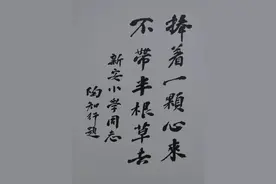 捧着一顆心来
不帶半根草去
新安小学同志
陶知行題